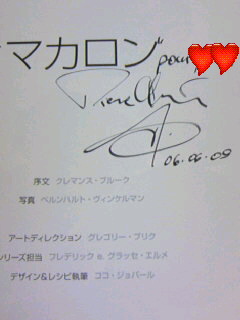 マカロン
pour
Pierre Hermé
06.06.09
序文 クレマンス・ブルーク
写真 ベルンハルト・ヴィンケルマン
アートディレクション グレゴリー・ブリク
シリーズ担当 フレデリック e. グラッセ・エルメ
デザイン&レシピ執筆 ココ・ジョバール